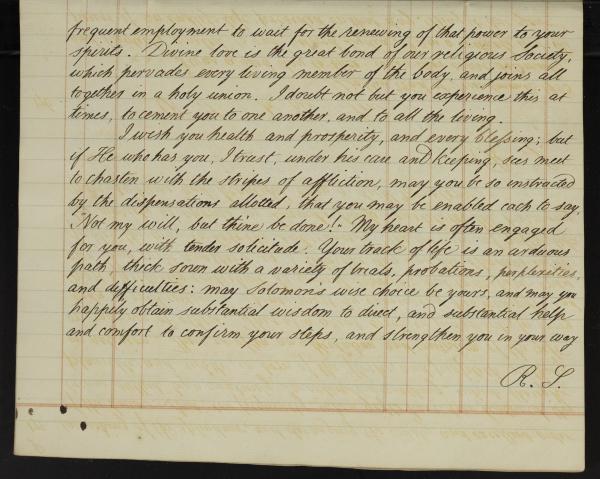 frequent employment to wait for the renewing of that power to your
spirits. Divine love is the great bond of our religious Society,
which pervades every living member of the body, and joins all
together in a holy union. I doubt not but you experience this at
times, to cement you to one another, and to all the living.
I wish you health and prosperity, and every blessing; but
if He who has you, I trust, under his care and keeping, sees meet
to chasten with the stripes of affliction, may you be so instructed
by the dispensations allotted, that you may be enabled each to say,
"Not my will, but thine be done!" My heart is often engaged
for you, with tender solicitude. Your track of life is an arduous
path, thick sown with a variety of trials, probations, perplexities,
and difficulties: may Solomon's wise choice be yours, and may you
happily obtain substantial wisdom to direct, and substantial help
and comfort to confirm your steps, and strengthen you in your way
R. S.